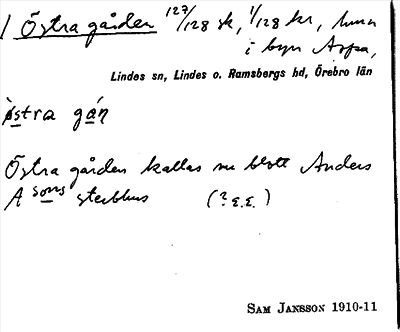 1 Östra gården 127/128 sk, 1/128 kr, hmn
i byn Aspa,
Lindes sn, Lindes o. Ramsbergs hd, Örebro län
östra gán
Östra gården kallas nu blott Anders
A sons sterbhus (? E.E.)
SAM JANSSON 1910-11